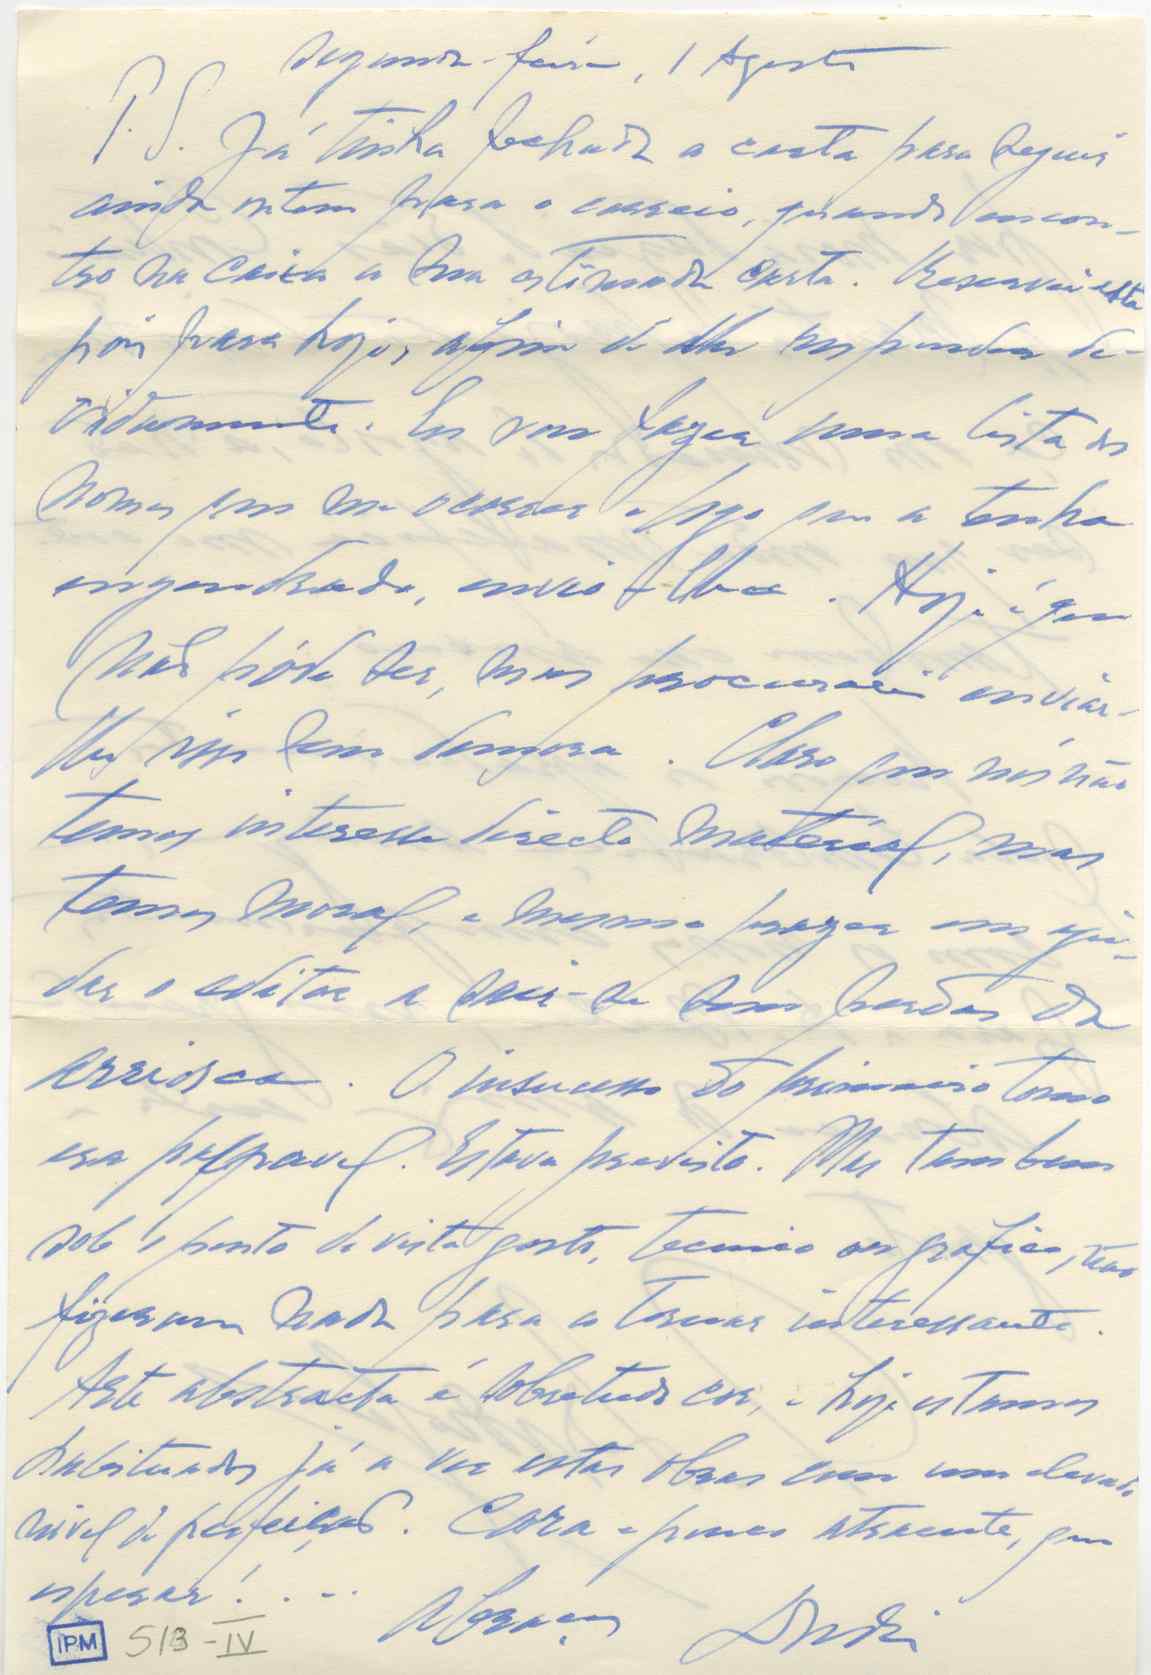 segunda-feira, 1 Agosto
P.S. Já tinha fechado a carta para seguir
ainda ontem para o correio, quando encon-
tro na caixa a sua estimada carta. Reservei esta
pois para hoje, afim de lhe responder de-
vidamente. Eu vou fazer uma lista dos
nomes que me ocorrer e logo que a tenha
engendrado, envio-lha. Hoje é que
não póde ser, mas procurarei enviar-
lha sem demora. Claro que nós não
temos interesse directo material, mas
temos moral, e mesmo prazer em aju-
dar o editor a sair-se sem perdas da
arrisca. O insucesso do primeiro tomo
era palpavel. Estava previsto. Mas tambem
sob o ponto de vista gosto, tecnico ou grafico, não
fizeram nada para o tornar interessante.
Arte abstracta é sobretudo cor, e hoje estamos
habituados já a ver estas obras com um elevado
nivel de perfeição. Cara e pouco atraente, que
esperar! . . .
Abraços
IPM 513-IV